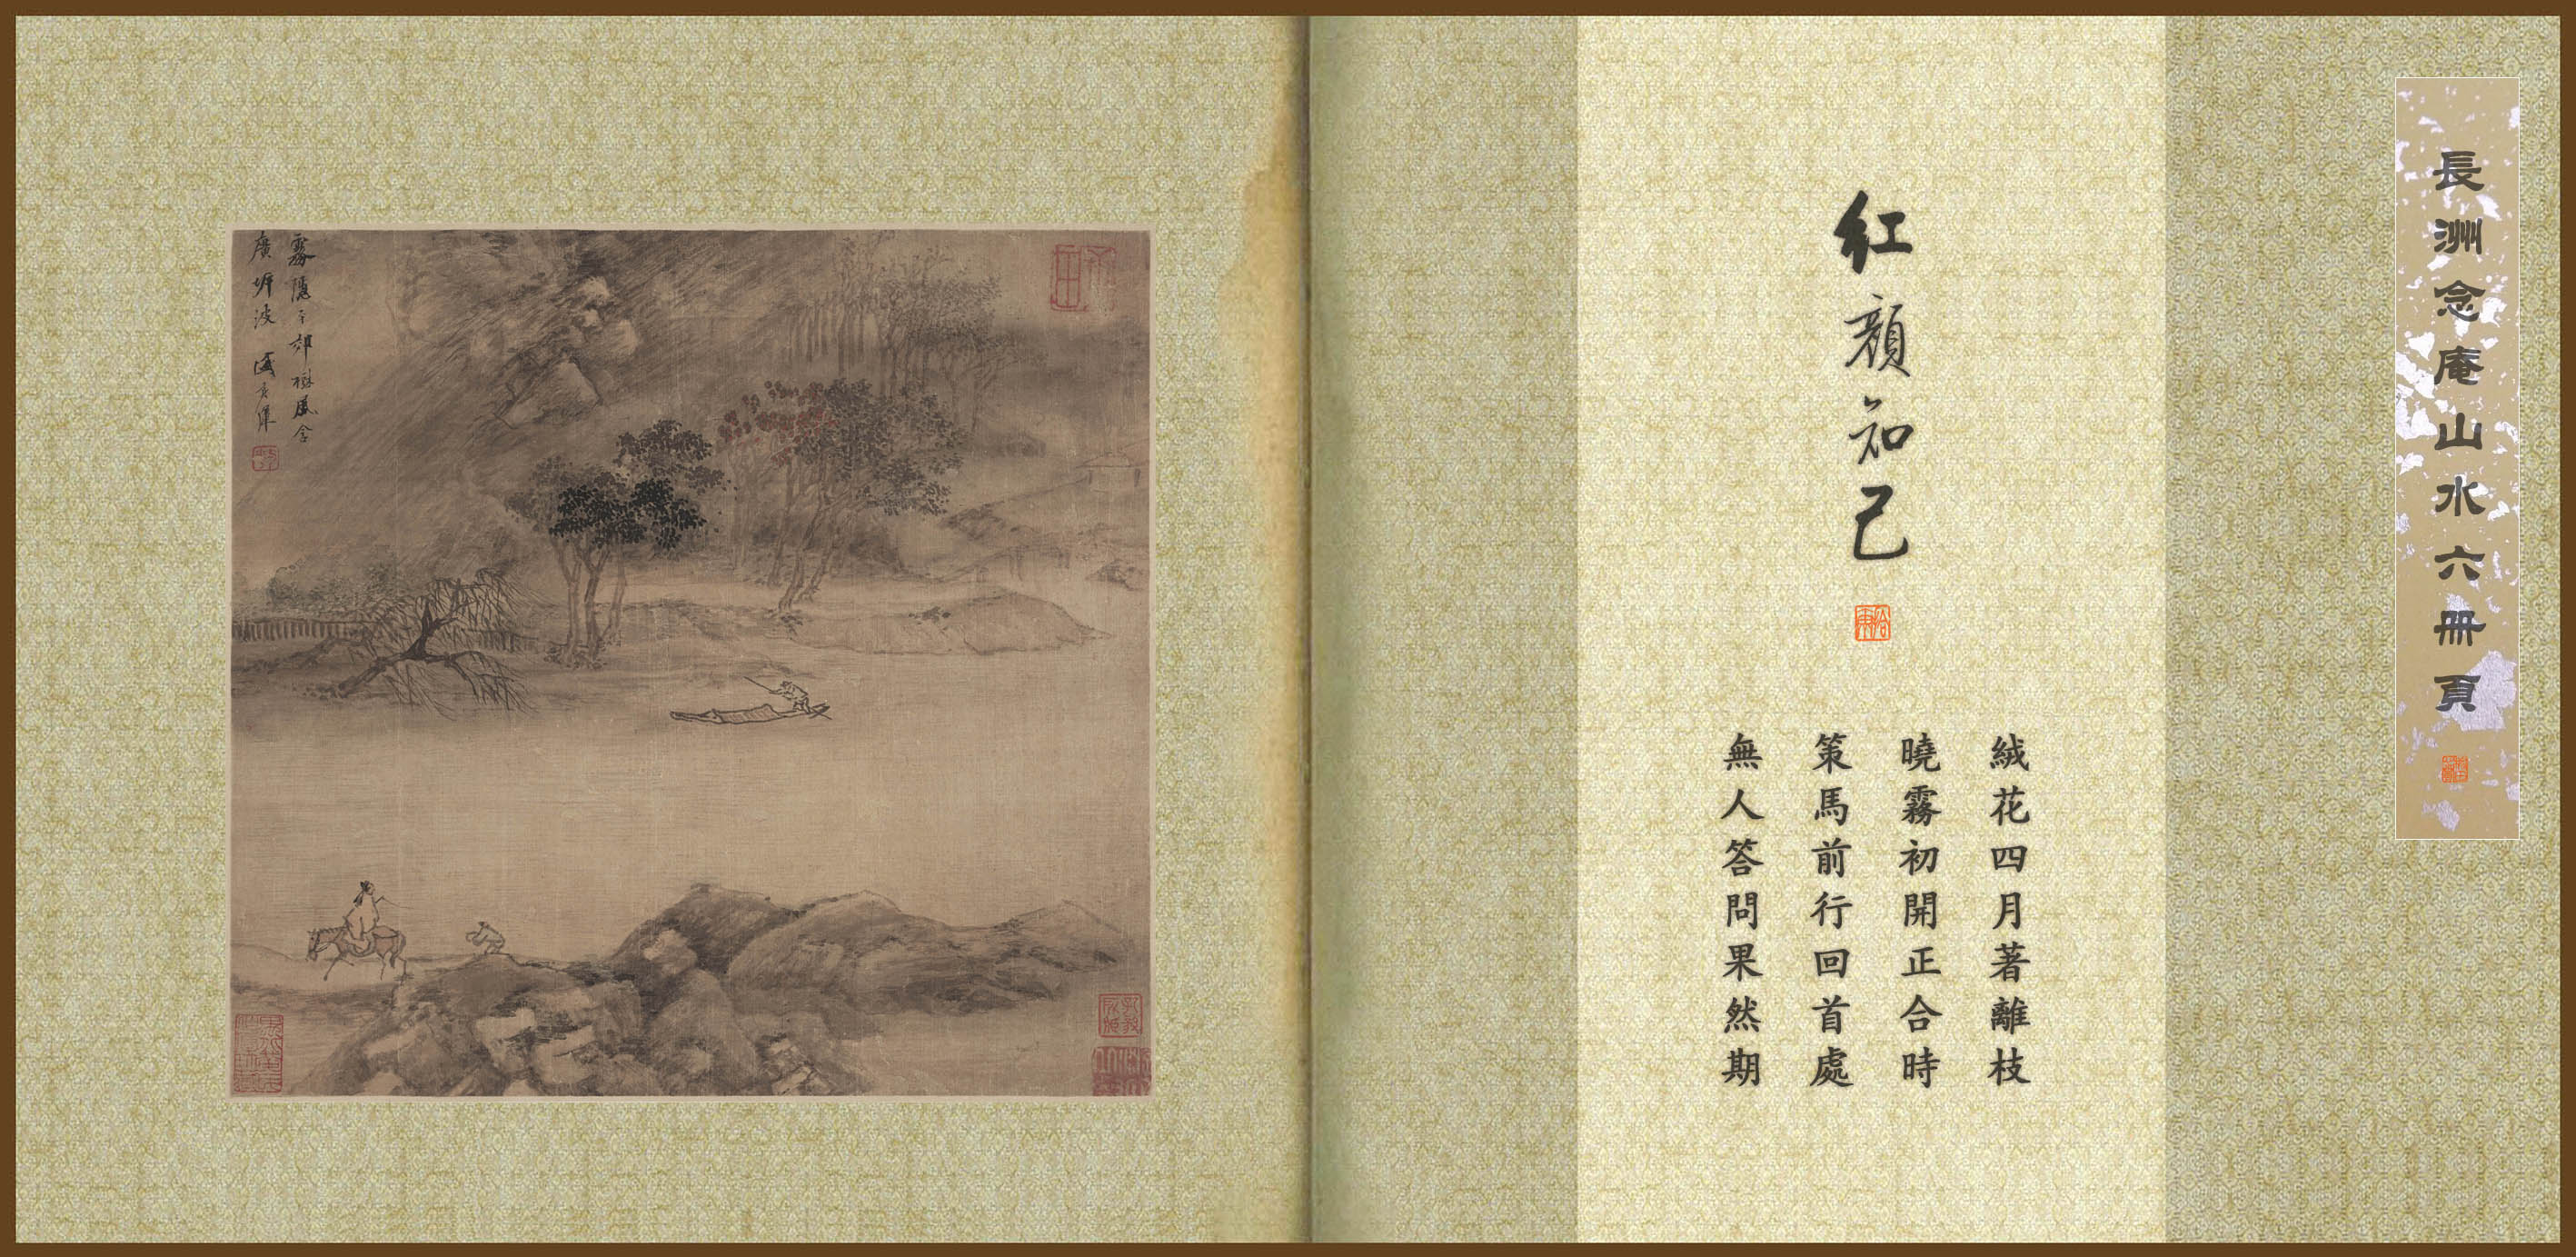 長洲念庵山水六冊頁
紅顏知己
絨花四月著離枝
曉霧初開正合時
策馬前行回首處
無人答問果然期
霧隱平郊樹風含
廣岸波